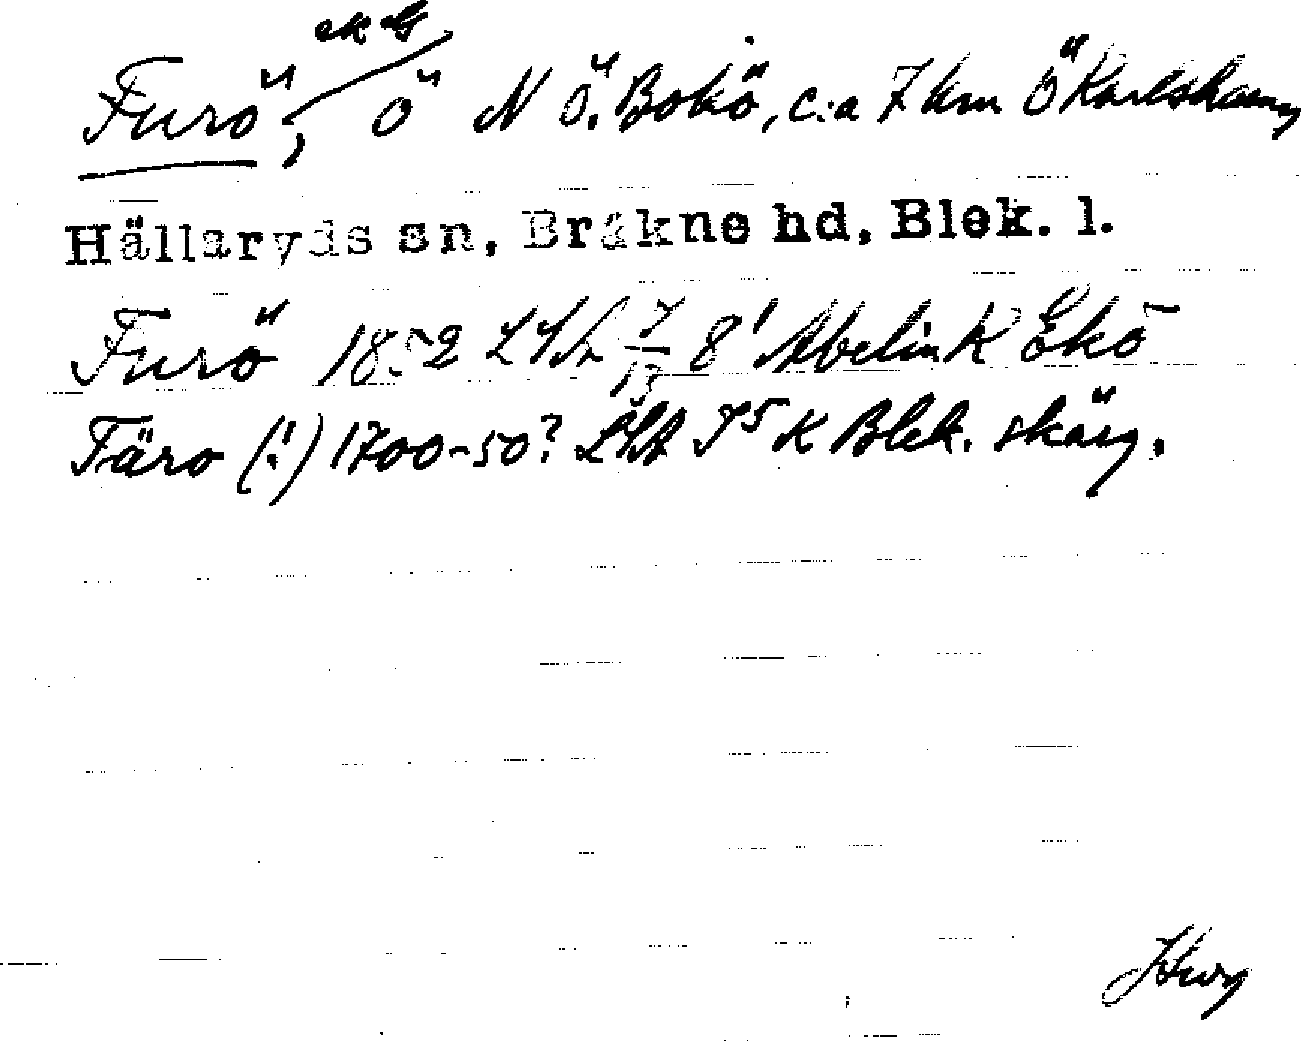 ek G
Furö, ö N Ö. Bokö, c:a 7 km Ö Karlshamn
Hällaryds sn, Bräkne hd, Blek. l.
Furö 1852 LSA 7/13 8' Abelin K Ekö
Färo (!) 1700-50? LSA I5 K Blek. skärg.